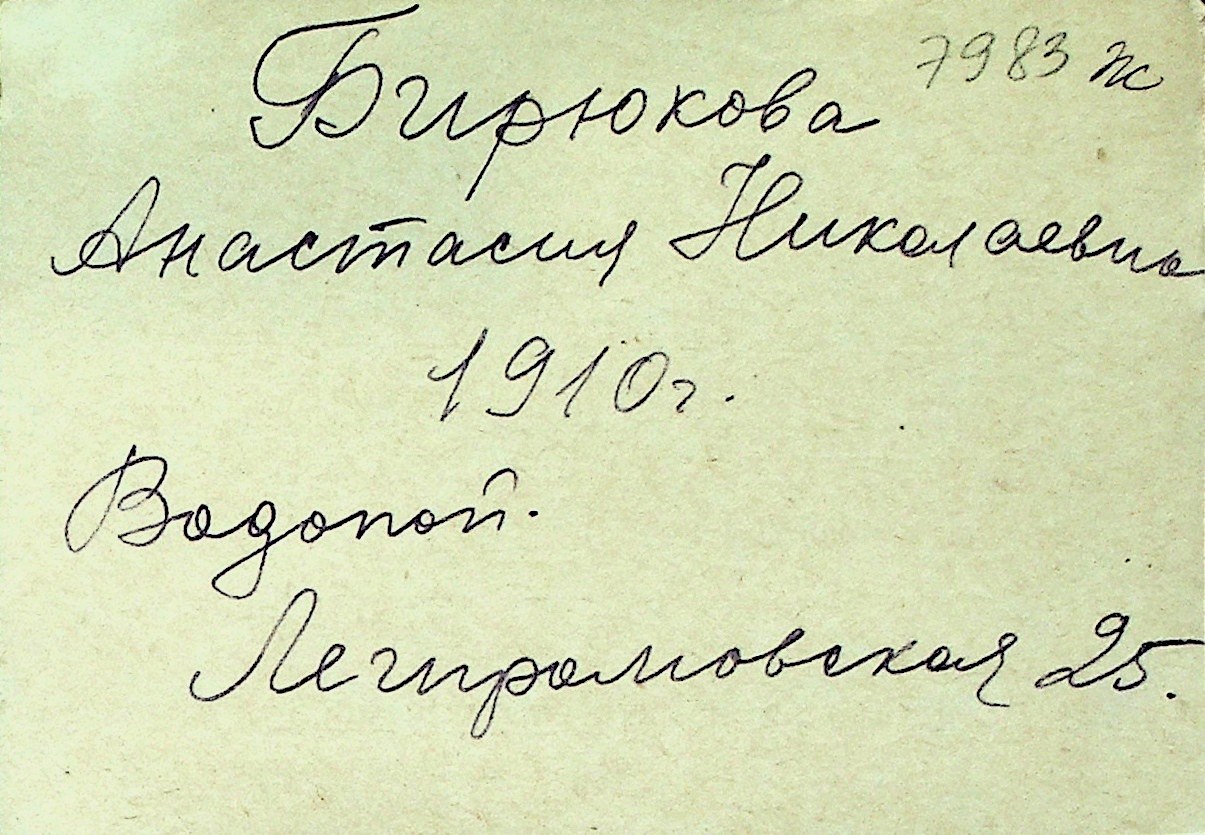 7983 ж
Бирюкова
Анастасия Николаевна
1910г.
Водопой.
Легпромовская 25.